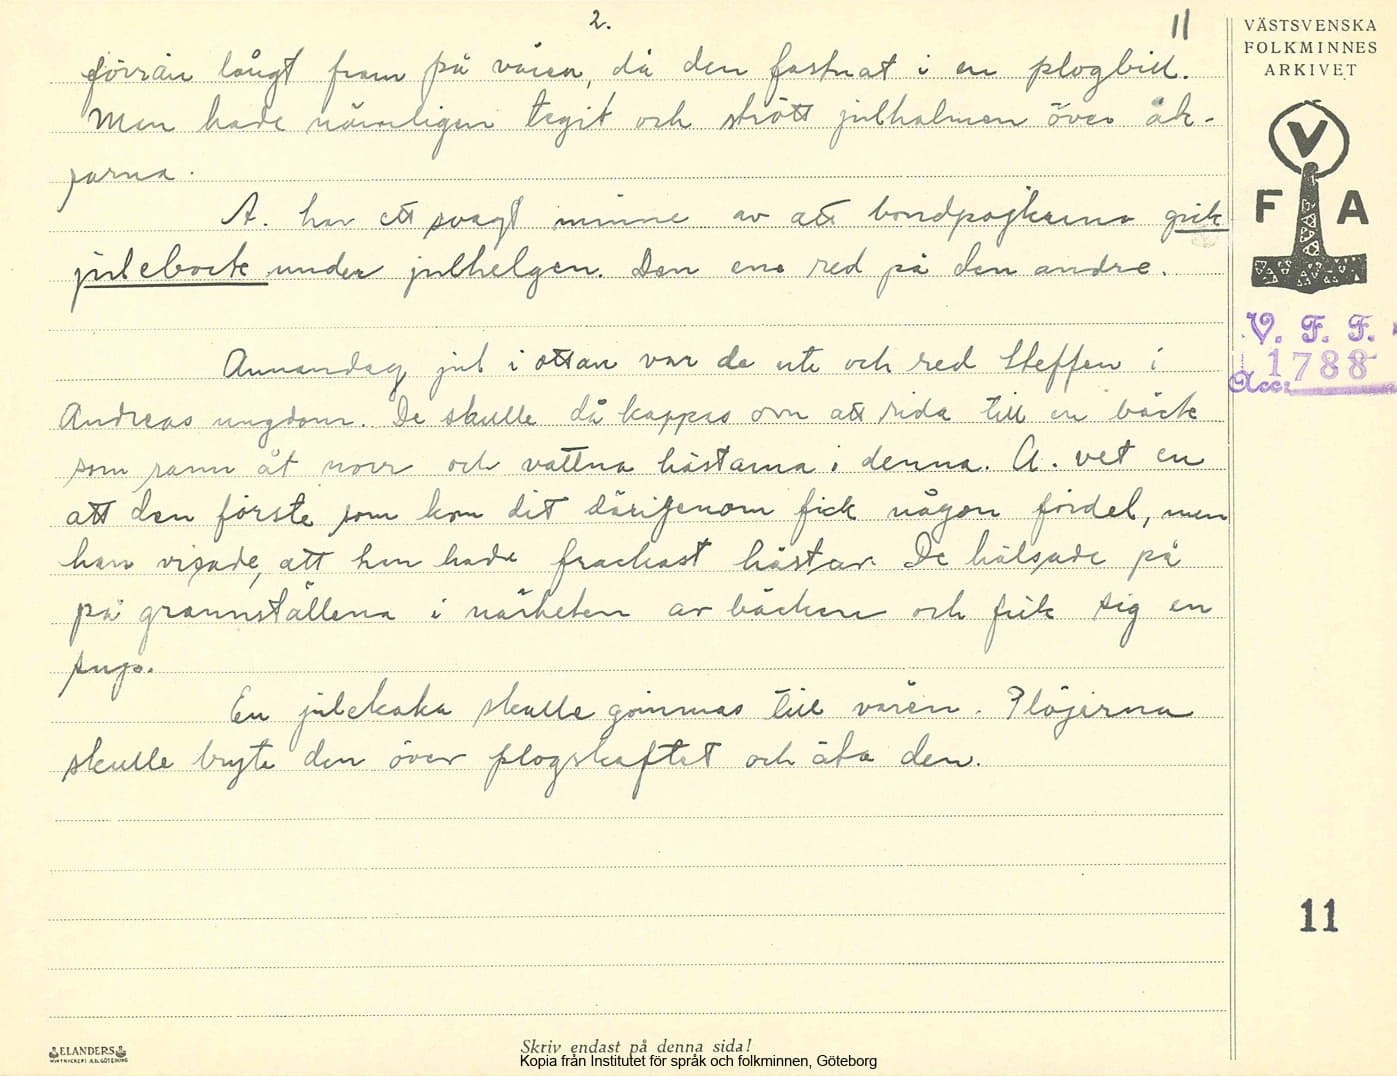 2.
11
VÄSTSVENSKA
FOLKMINNES
ARKIVET
förrän långt fram på våren, då den fastnat i en plogbill.
Man hade nämligen tagit och strött julhalmen över åk-
rarna.
A. har ett svagt minne av att bondpojkarna gick
julebock under julhelgen. Den ene red på den andre.
Annandag jul i ottan var de ute och red Steffen i
Andreas ungdom. De skulle då kappas om att rida till en bäck
som rann åt norr och vattna hästarna i denna. A. vet en
att den förste som kom dit därigenom fick någon fördel, men
han visade, att han hade frackast hästar. De hälsade på
på grannställena i närheten av bäcken och fick sig en
sup.
En julekaka skulle gömmas till våren. Plöjerna
skulle bryta den över plogskaftet och äta den.
V
F A
V. F. F.
Acc. 1788
11
ELANDERS
Skriv endast på denna sida!
Kopia från Institutet för språk och folkminnen, Göteborg